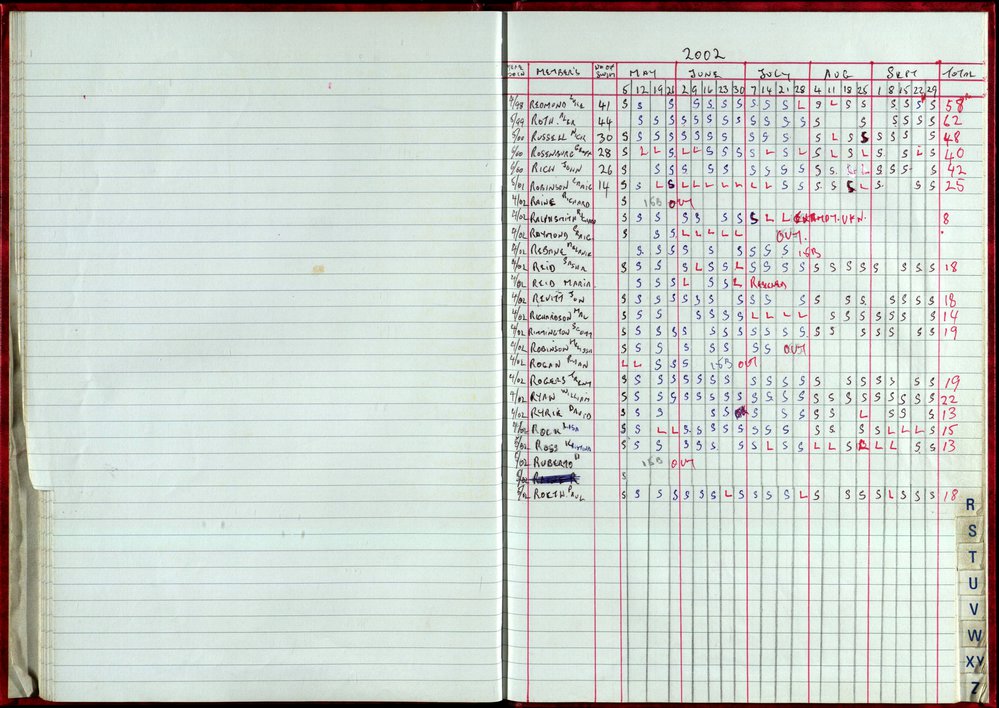 2002
MEMBERS NO OF SWIMS MAY JUNE JULY AUG SEPT TOTAL
5 12 19 26 2 9 16 23 30 7 14 21 28 4 11 18 25 1 8 15 22 29
REDMOND 41 S S S S S S S S S S S S L S L S S S S S S S 58
ROTH 44 S S S S S S S S S S S S S S S S S S 62
5/00 RUSSELL NEIL 30 S S S S S S S S S S S S S L S S S S S S S 48
ROSENBURG 28 S L L S L L S S S S L S L S L S L S S L S 40
RICH JOHN 26 S S S S S S S S S S S S L S S S S 42
5/01 ROBINSON CRAIG 14 S S L S L L L L L L L L S S S S S L S S S 25
4/02 RAINE RICHARD S 15B OUT
4/02 RALPHSMITH S S S S S S S S L L UKN. 8
4/02 RAYMOND CRAIG S S S L L L L OUT.
4/02 REBANE MELANIE S S S S S S S S S S S 15B
4/02 REID SASHA S S S S L S S L S S S S S S S S S S S S S 18
4/02 REID MARIA S S S L S L
4/02 REVITT JON S S S S S S S S S S S S S S S S S S S S 18
4/02 RICHARDSON MAL S S S S S S S S L L L L S S S S S S S 14
4/02 RIMMINGTON SCOTT S S S S S S S S S S S S S S S S S S S S 19
4/02 ROBINSON MELISSA S S S S S S S S OUT
4/02 ROGAN RYAN L L S S S 15B OUT
4/02 ROGERS TRENT S S S S S S S S S S S S S S S S S S S 19
4/02 RYAN WILLIAM S S S S S S S S S S S S S S S S S S S S S S 22
4/02 RYRIE DAVID S S S S S S S S S S L S S S 13
4/02 ROCK LISA S S L L S S S S S S S S S S S S S L L L S 15
5/02 ROSS S S S S S S S S L S S L L S L L L S S 13
5/02 RUBERTO 15B OUT
S
5/02 ROETH PAUL S S S S S S S L S S S S L S S S S S L S S S 18
R
S
T
U
V
W
XY
Z